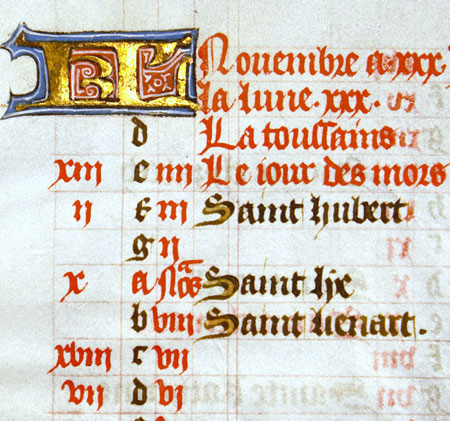 KL Nouembre a xxx.
la lune .xxx.
d La toussains
xiii e iiii Le iour des mors
ii f iii Saint hubert
g ii
x a Nõs Saint lie
b viii Saint lienart.
xviii c vii
vii d vi